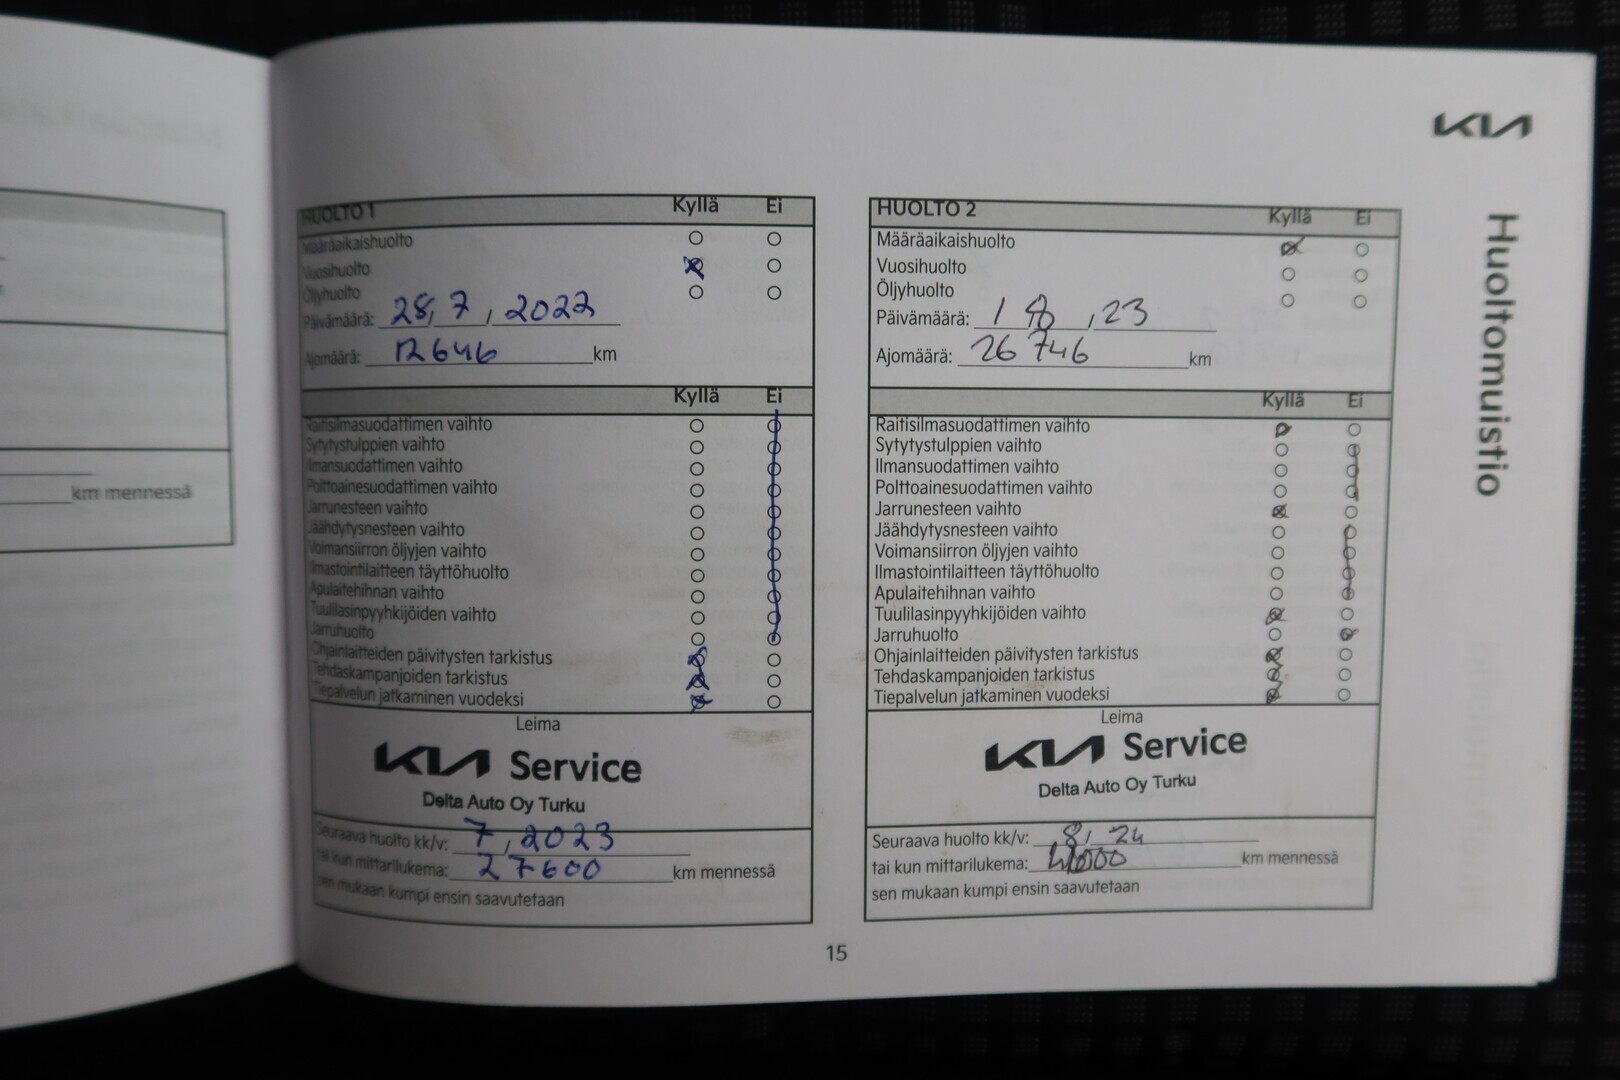 KIA
Huoltomuistio
km mennessä
HUOLTO 1 Kyllä Ei
Määräaikaishuolto
Vuosihuolto
Öljyhuolto
Päivämäärä: 28, 7, 2022
Ajomäärä: 12646 km
Kyllä Ei
Raitisilmasuodattimen vaihto
Sytytystulppien vaihto
Ilmansuodattimen vaihto
Polttoainesuodattimen vaihto
Jarrunesteen vaihto
Jäähdytysnesteen vaihto
Voimansiirron öljyjen vaihto
Ilmastointilaitteen täyttöhuolto
Apulaitehihnan vaihto
Tuulilasinpyyhkijöiden vaihto
Jarruhuolto
Ohjainlaitteiden päivitysten tarkistus
Tehdaskampanjoiden tarkistus
Tiepalvelun jatkaminen vuodeksi
Leima
KIA Service
Delta Auto Oy Turku
Seuraava huolto kk/v: 7, 2023
tai kun mittarilukema: 27600 km mennessä
sen mukaan kumpi ensin saavutetaan
HUOLTO 2 Kyllä Ei
Määräaikaishuolto
Vuosihuolto
Öljyhuolto
Päivämäärä: 1 8, 23
Ajomäärä: 26 746 km
Kyllä Ei
Raitisilmasuodattimen vaihto
Sytytystulppien vaihto
Ilmansuodattimen vaihto
Polttoainesuodattimen vaihto
Jarrunesteen vaihto
Jäähdytysnesteen vaihto
Voimansiirron öljyjen vaihto
Ilmastointilaitteen täyttöhuolto
Apulaitehihnan vaihto
Tuulilasinpyyhkijöiden vaihto
Jarruhuolto
Ohjainlaitteiden päivitysten tarkistus
Tehdaskampanjoiden tarkistus
Tiepalvelun jatkaminen vuodeksi
Leima
KIA Service
Delta Auto Oy Turku
Seuraava huolto kk/v: 8, 24
tai kun mittarilukema: km mennessä
sen mukaan kumpi ensin saavutetaan
15